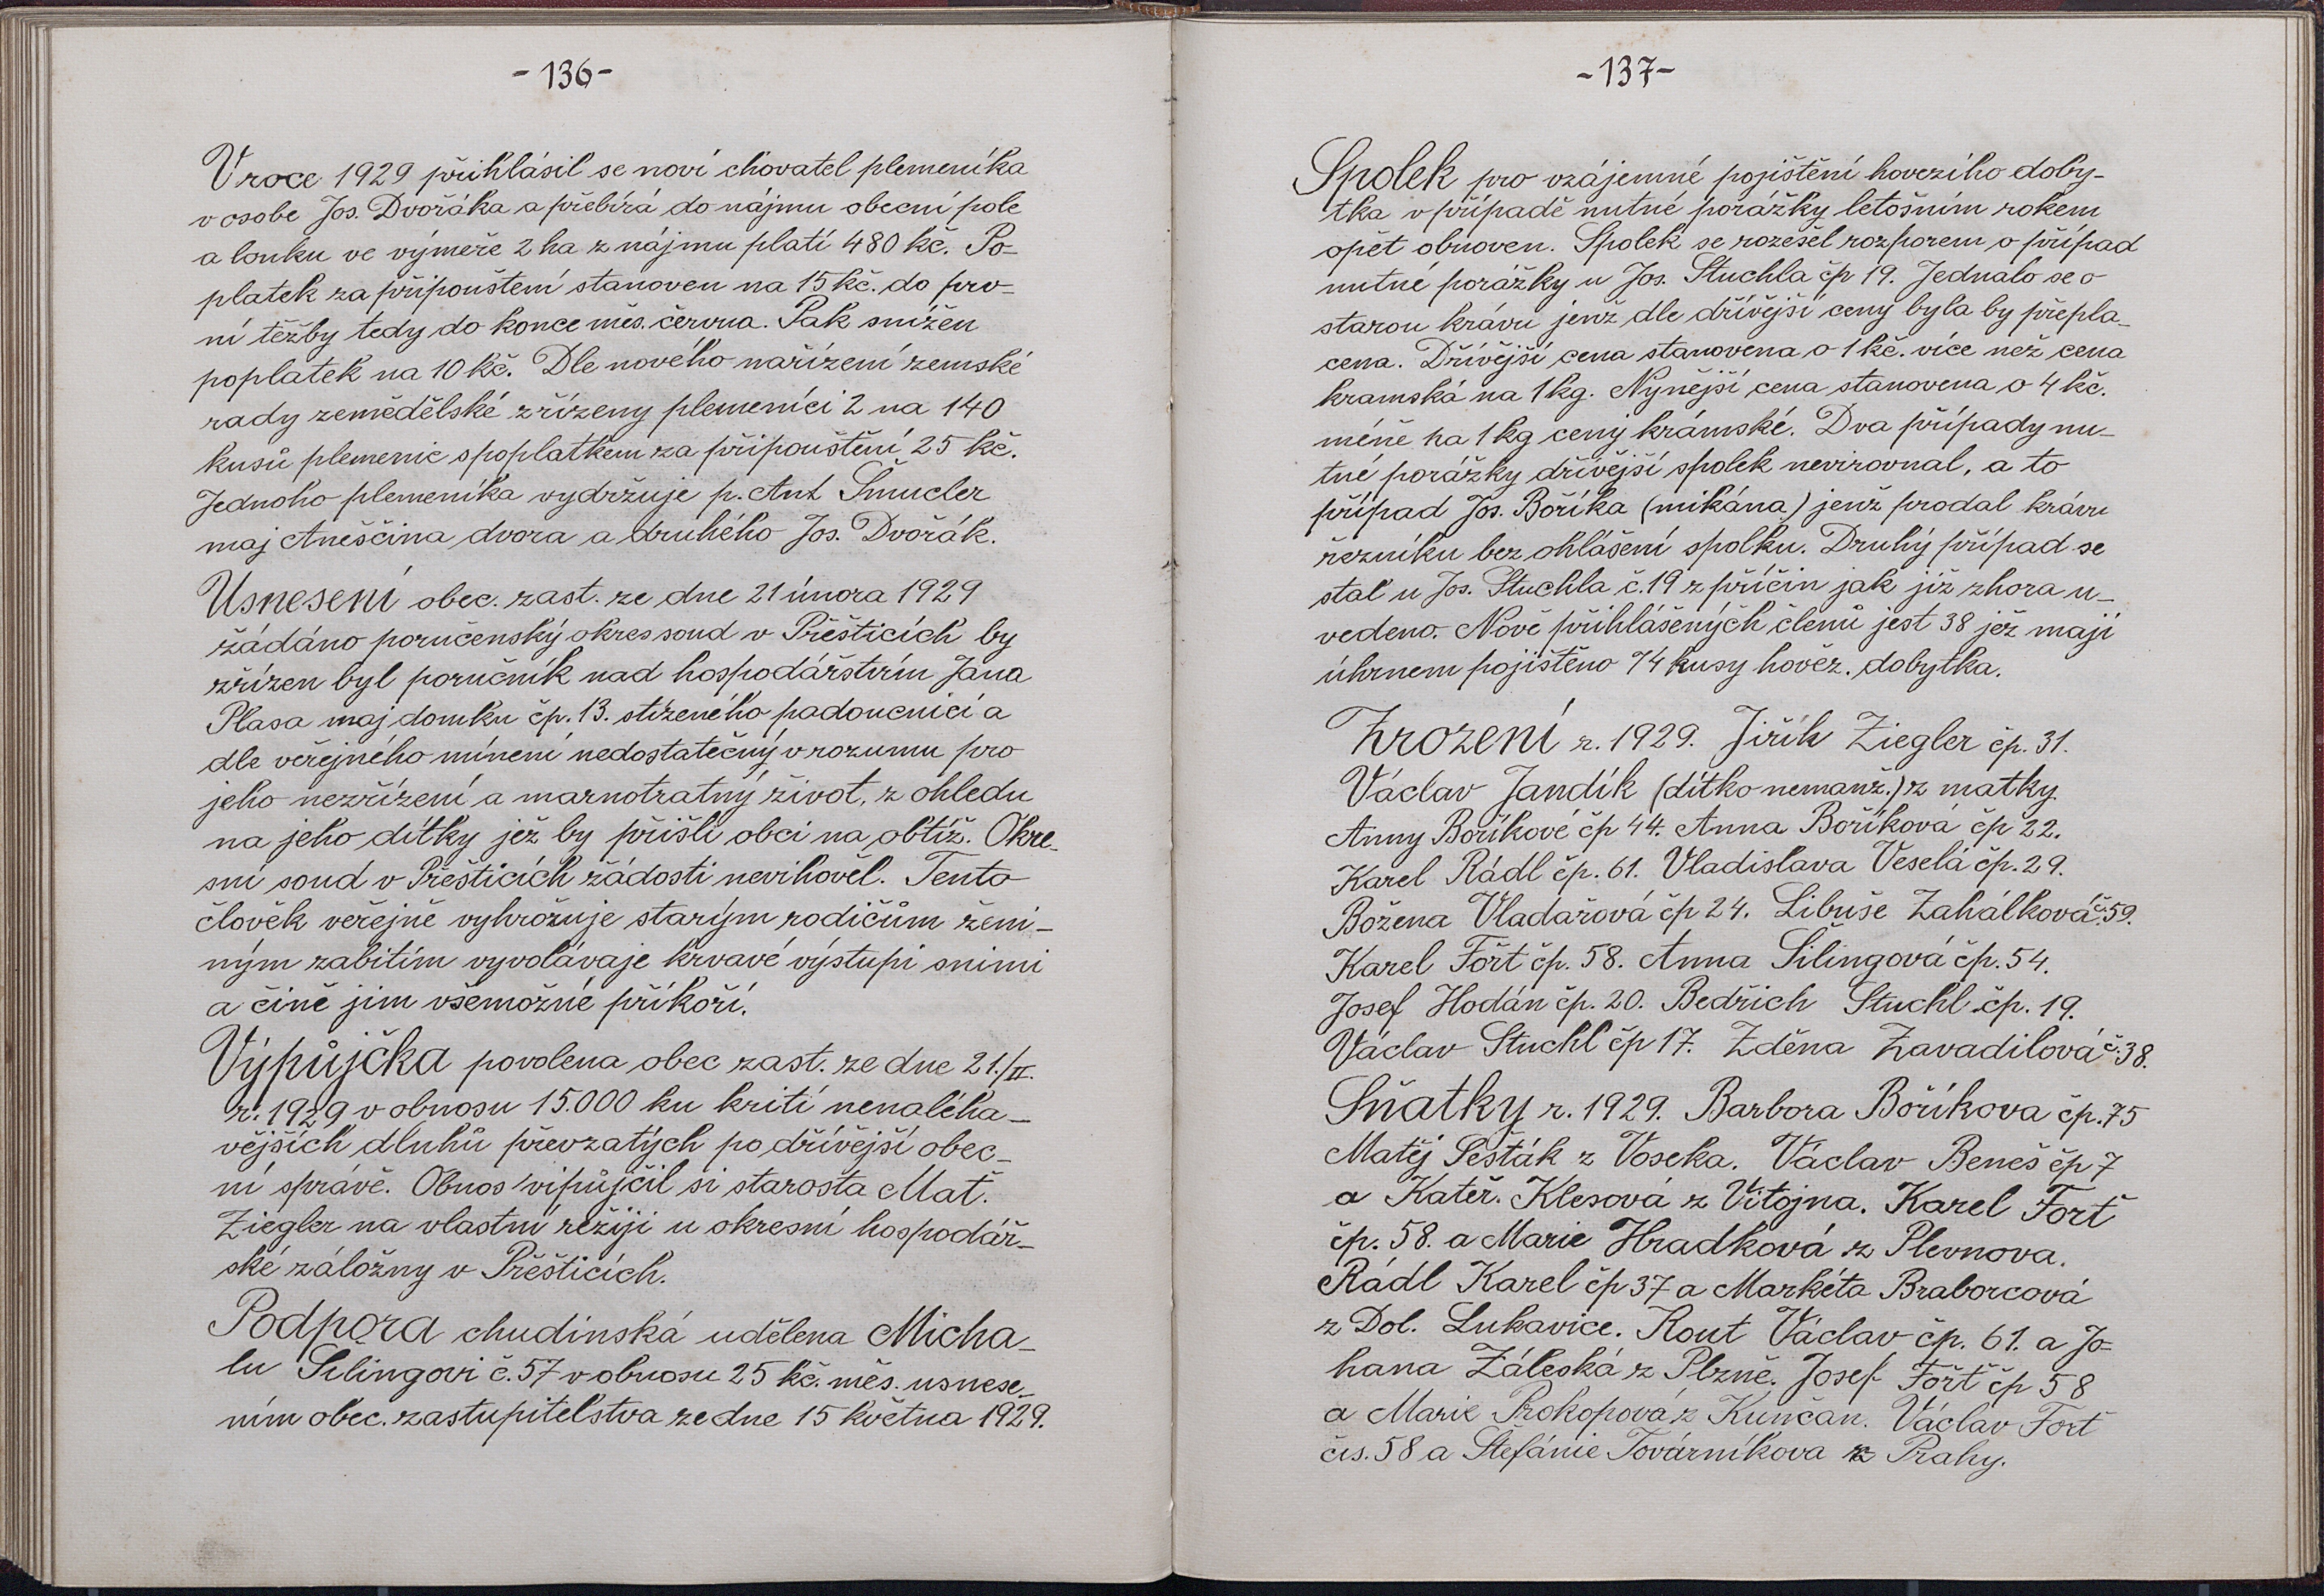 - 136 -
V roce 1929 přihlásil se noví chovatel plemeníka
v osobe Jos. Dvořáka a přebírá do nájmu obecní pole
a louku ve výmeře 2 ha z nájmu platí 480 kč. Po-
platek za připouštení stanoven na 15 kč. do prv-
ní těžby tedy do konce měs. června. Pak snížen
poplatek na 10 kč. Dle nového nařízení zemské
rady zemědělské zřízeny plemeníci 2 na 140
kusů plemenic s poplatkem za připouštění 25 kč.
Jednoho plemeníka vydržuje p. Ant Šmucler
maj Aneščina dvora a druhého Jos. Dvořák.
Usnesení obec. zast. ze dne 21 února 1929
žádáno poručenský okres soud v Přešticích by
zřízen byl poručník nad hospodářstvím Jana
Plasa maj domku čp. 13. stiženého padoucnicí a
dle veřejného mínení nedostatečný v rozumu pro
jeho nezřízení a marnotratný život, z ohledu
na jeho dítky jež by přišli obci na obtíž. Okre-
sní soud v Přešticích žádosti nevihověl. Tento
člověk veřejně vyhrožuje starým rodičům ženi-
ným zabitím vyvolávaje krvavé výstupi s nimi
a čině jim všemožné příkoří.
Výpůjčka povolena obec zast. ze dne 21./II.
r. 1929 v obnosu 15.000 ku kriti nenaléha-
vějších dluhů převzatých po dřívější obec-
ní správě. Obnos vipůjčil si starosta Mat.
Ziegler na vlastní režiji u okresní hospodář-
ské záložny v Přešticích.
Podpora chudinská udělena Micha-
lu Šilingovi č. 57 v obnosu 25 kč. měs. usnese-
ním obec. zastupitelstva ze dne 15 května 1929.
- 137 -
Spolek pro vzájemné pojištění hovezího doby-
tka v případě nutné porážky letošním rokem
opět obnoven. Spolek se rozešel rozporem o případ
nutné porážky u Jos. Stuchla čp 19. Jednalo se o
starou krávu jenž dle dřívější ceny byla by přepla-
cena. Dřívější cena stanovena o 1 kč. více než cena
kramská na 1 kg. Nynější cena stanovena o 4 kč.
méně na 1 kg ceny krámské. Dva případy nu-
tné porážky dřívější spolek nevirovnal, a to
případ Jos. Boříka (mikána) jenž prodal krávu
řezníku bez ohlášení spolku. Druhý případ se
stal u Jos. Stuchla č. 19 z příčin jak již zhora u-
vedeno. Nově přihlášených členů jest 38 jež mají
úhrnem pojištěno 74 kusy hověz. dobytka.
Zrození r. 1929. Jiřík Ziegler čp. 31.
Václav Jandík (dítko nemanž.) z matky
Anny Boříkové čp 44. Anna Boříková čp 22.
Karel Rádl čp. 61. Vladislava Veselá čp. 29.
Božena Vladařová čp 24. Libuše Zahálková č. 59.
Karel Fořt čp. 58. Anna Šilingová čp. 54.
Josef Hodán čp. 20. Bedřich Stuchl čp. 19.
Václav Stuchl čp 17. Zděna Zavadilová č. 38.
Sňatky r. 1929. Barbora Boříkova čp. 75
Matěj Šesták z Voseka. Václav Beneš čp 7
a Kateř. Klesová z Vitojna. Karel Fořt
čp. 58. a Marie Hradková z Plevnova.
Rádl Karel čp 37 a Markéta Braborcová
z Dol. Lukavice. Kout Václav čp. 61. a Jo-
hana Záleská z Plzně. Josef Fořt čp 58
a Marie Prokopová z Kunčan. Václav Fořt
čís. 58 a Štefánie Továrníkova z Prahy.